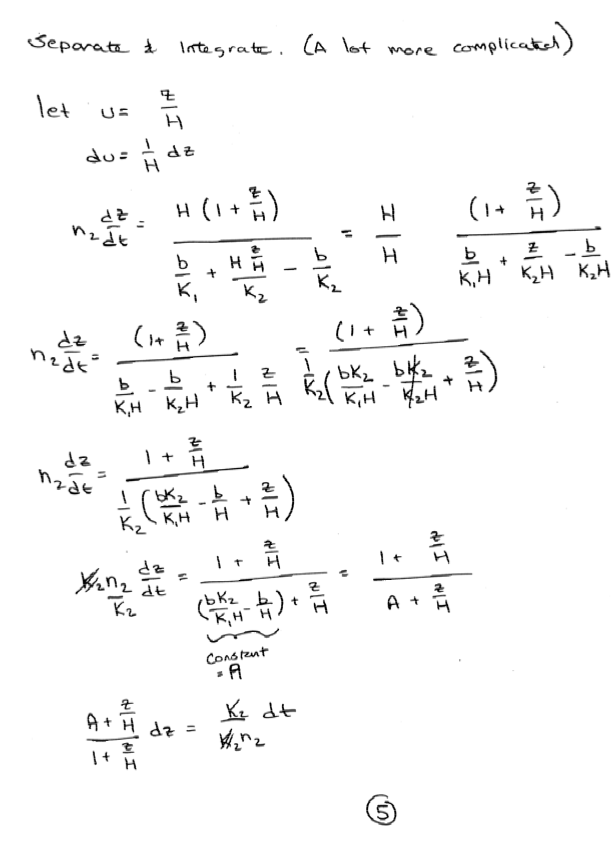 Separate & Integrate. (A lot more complicated)
let u = z/H
du = 1/H dz
n₂ dz/dt = H (1 + z/H) / (b/K₁ + H z/H / K₂ − b/K₂) = H/H (1 + z/H) / (b/K₁H + z/K₂H − b/K₂H)
n₂ dz/dt = (1 + z/H) / (b/K₁H − b/K₂H + 1/K₂ z/H) = (1 + z/H) / (1/K₂ (bK₂/K₁H − bK₂/K₂H + z/H))
n₂ dz/dt = 1 + z/H / (1/K₂ (bK₂/K₁H − b/H + z/H))
n₂/K₂ dz/dt = 1 + z/H / ((bK₂/K₁H − b/H) + z/H) = 1 + z/H / (A + z/H)
Constant
= A
A + z/H / (1 + z/H) dz = K₂ dt / n₂
5